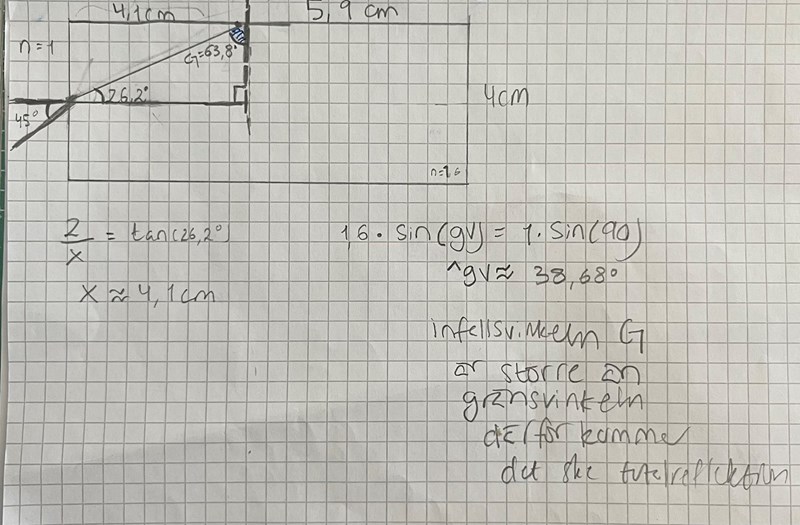 4,1cm 5,9 cm
n=1
G=63,8°
26,2°
4cm
45°
n=1,6
2/x = tan(26,2°)
1,6 · sin(gv) = 1 · sin(90)
x ≈ 4,1cm
^gv ≈ 38,68°
infallsvinkeln G
är större än
gränsvinkeln
därför kommer
det ske totalreflektion